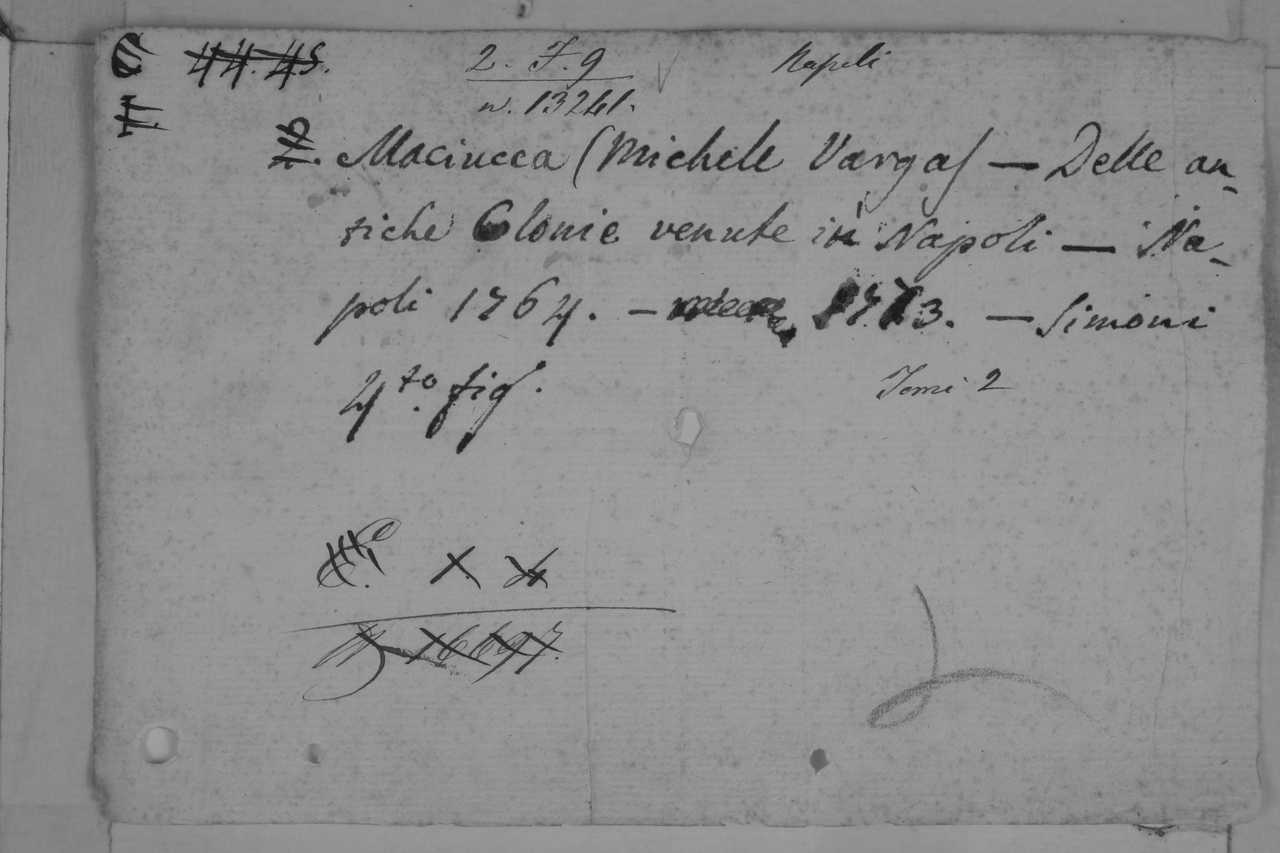 44. 45. 2. F. 9 Napoli
n. 13241.
Maciucca (Michele Vargas) — Delle an-
tiche Colonie venute in Napoli — Na-
poli 1764. — 1773. — Simoni
4.to fig. Tomi 2
X
16697.